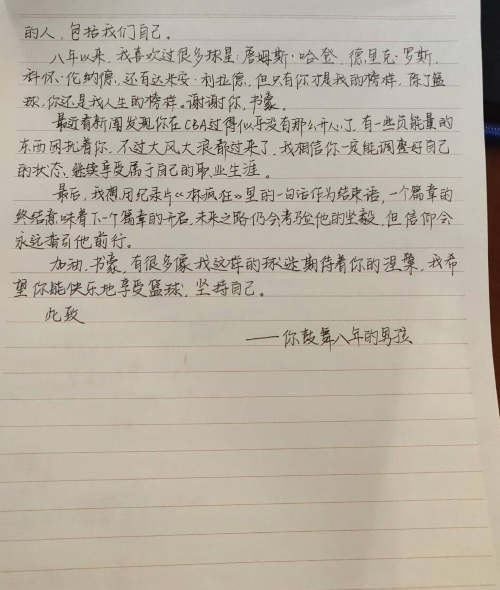 的人,包括我们自己。
八年以来,我喜欢过很多球星:詹姆斯·哈登,德里克·罗斯,
科怀·伦纳德,还有达米安·利拉德,但只有你才是我的榜样,除了篮
球,你还是我人生的榜样。谢谢你,书豪。
最近看新闻发现你在CBA过得似乎没有那么开心了,有一些负能量的
东西困扰着你,不过大风大浪都过来了,我相信你一定能调整好自己
的状态,继续享受属于自己的职业生涯。
最后,我想用纪录片《林疯狂》里的一句话作为结束语,一个篇章的
终结意味着下一个篇章的开启,未来之路仍会考验他的坚毅,但信仰会
永远指引他前行。
加油,书豪,有很多像我这样的球迷期待着你的涅槃,我希
望你能快乐地享受篮球,坚持自己。
此致
——你鼓舞八年的男孩